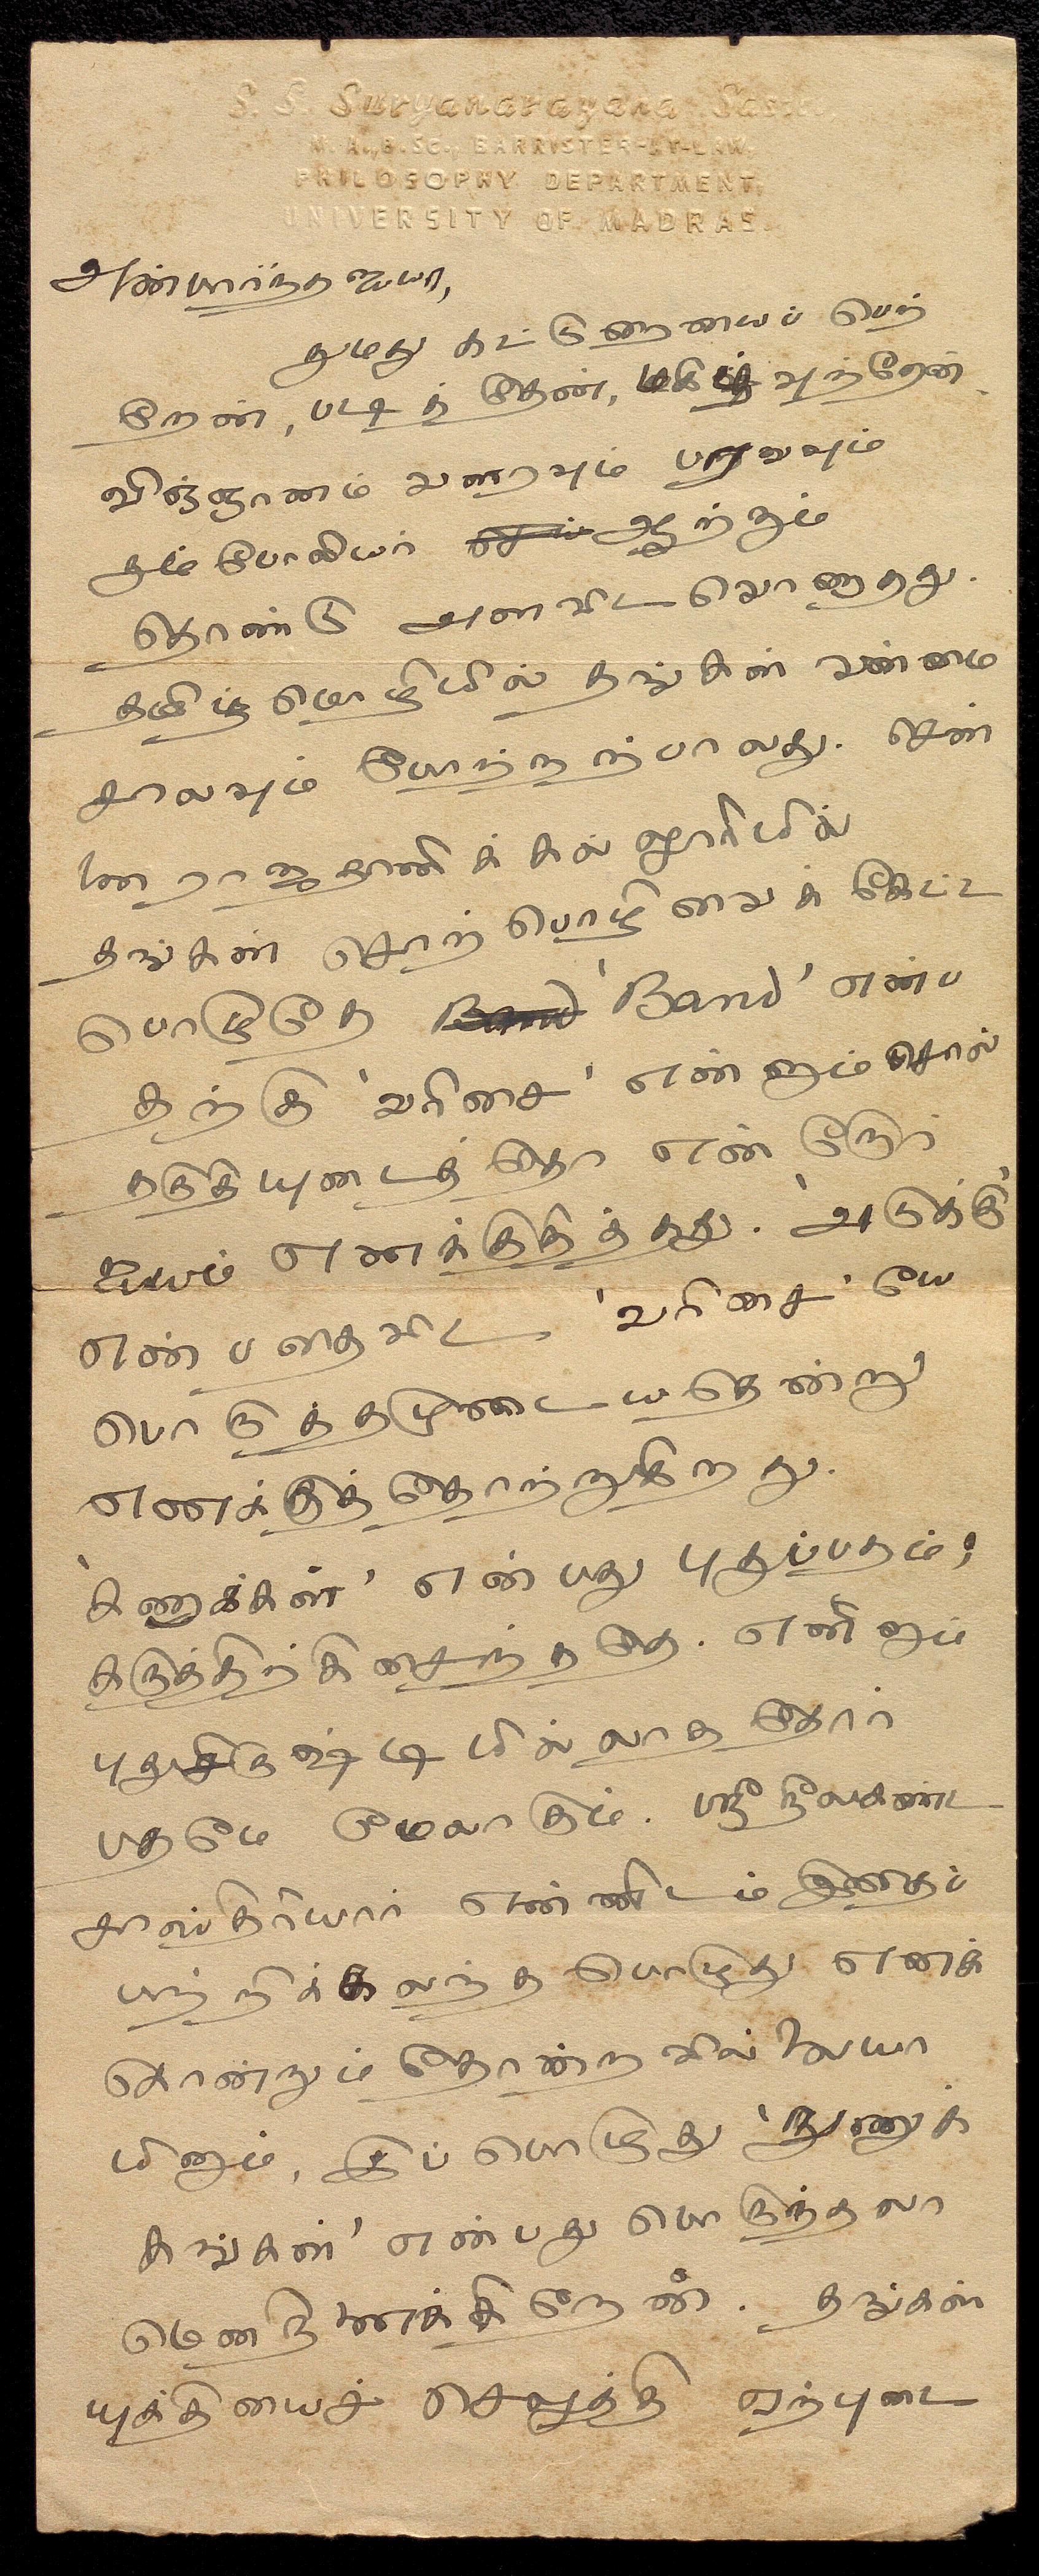 S. S. Suryanarayana Sastri,
M. A., B. SC., BARRISTER-AT-LAW.
PHILOSOPHY DEPARTMENT,
UNIVERSITY OF MADRAS.
அன்பார்ந்த ஐயா,
நுமது கட்டுரையைப் பெற்
றேன், படித்தேன், மகிழ்வுற்றேன்.
விஞ்ஞானம் வளரவும் பரவவும்
நும்போலியர் ஆற்றும்
தொண்டு அளவிடவொணாதது.
தமிழ்மொழியில் தங்கள் வன்மை
சாலவும் போற்றற்பாலது. சென்
னை ராஜதானிக் கல்லூரியில்
தங்கள் சொற்பொழிவைக் கேட்ட
பொழுதே 'Band' என்ப
தற்கு 'வரிசை' என்னும் சொல்
தகுதியுடைத்தோ என்றோர்
ஐயம் எனக்குதித்தது. 'அடுக்கு'
என்பதைவிட 'வரிசை' யே
பொருத்தமுடையதென்று
எனக்குத் தோற்றுகிறது.
'கணுக்கள்' என்பது புதுப்பதம்;
கருத்திற்கிசைந்ததே. எனினும்
புதுசிருஷ்டியில்லாததோர்
பதமே மேலாகும். ஸ்ரீ நீலகண்ட
சாஸ்திரியார் என்னிடம் இதைப்
பற்றிக் கலந்தபொழுது எனக்
கொன்றும் தோன்றவில்லையா
யினும், இப்பொழுது 'நுணுக்
கங்கள்' என்பது பொருந்தலா
மெனநினைக்கிறேன். தங்கள்
யுக்தியைச் செலுத்தி ஏற்புடை